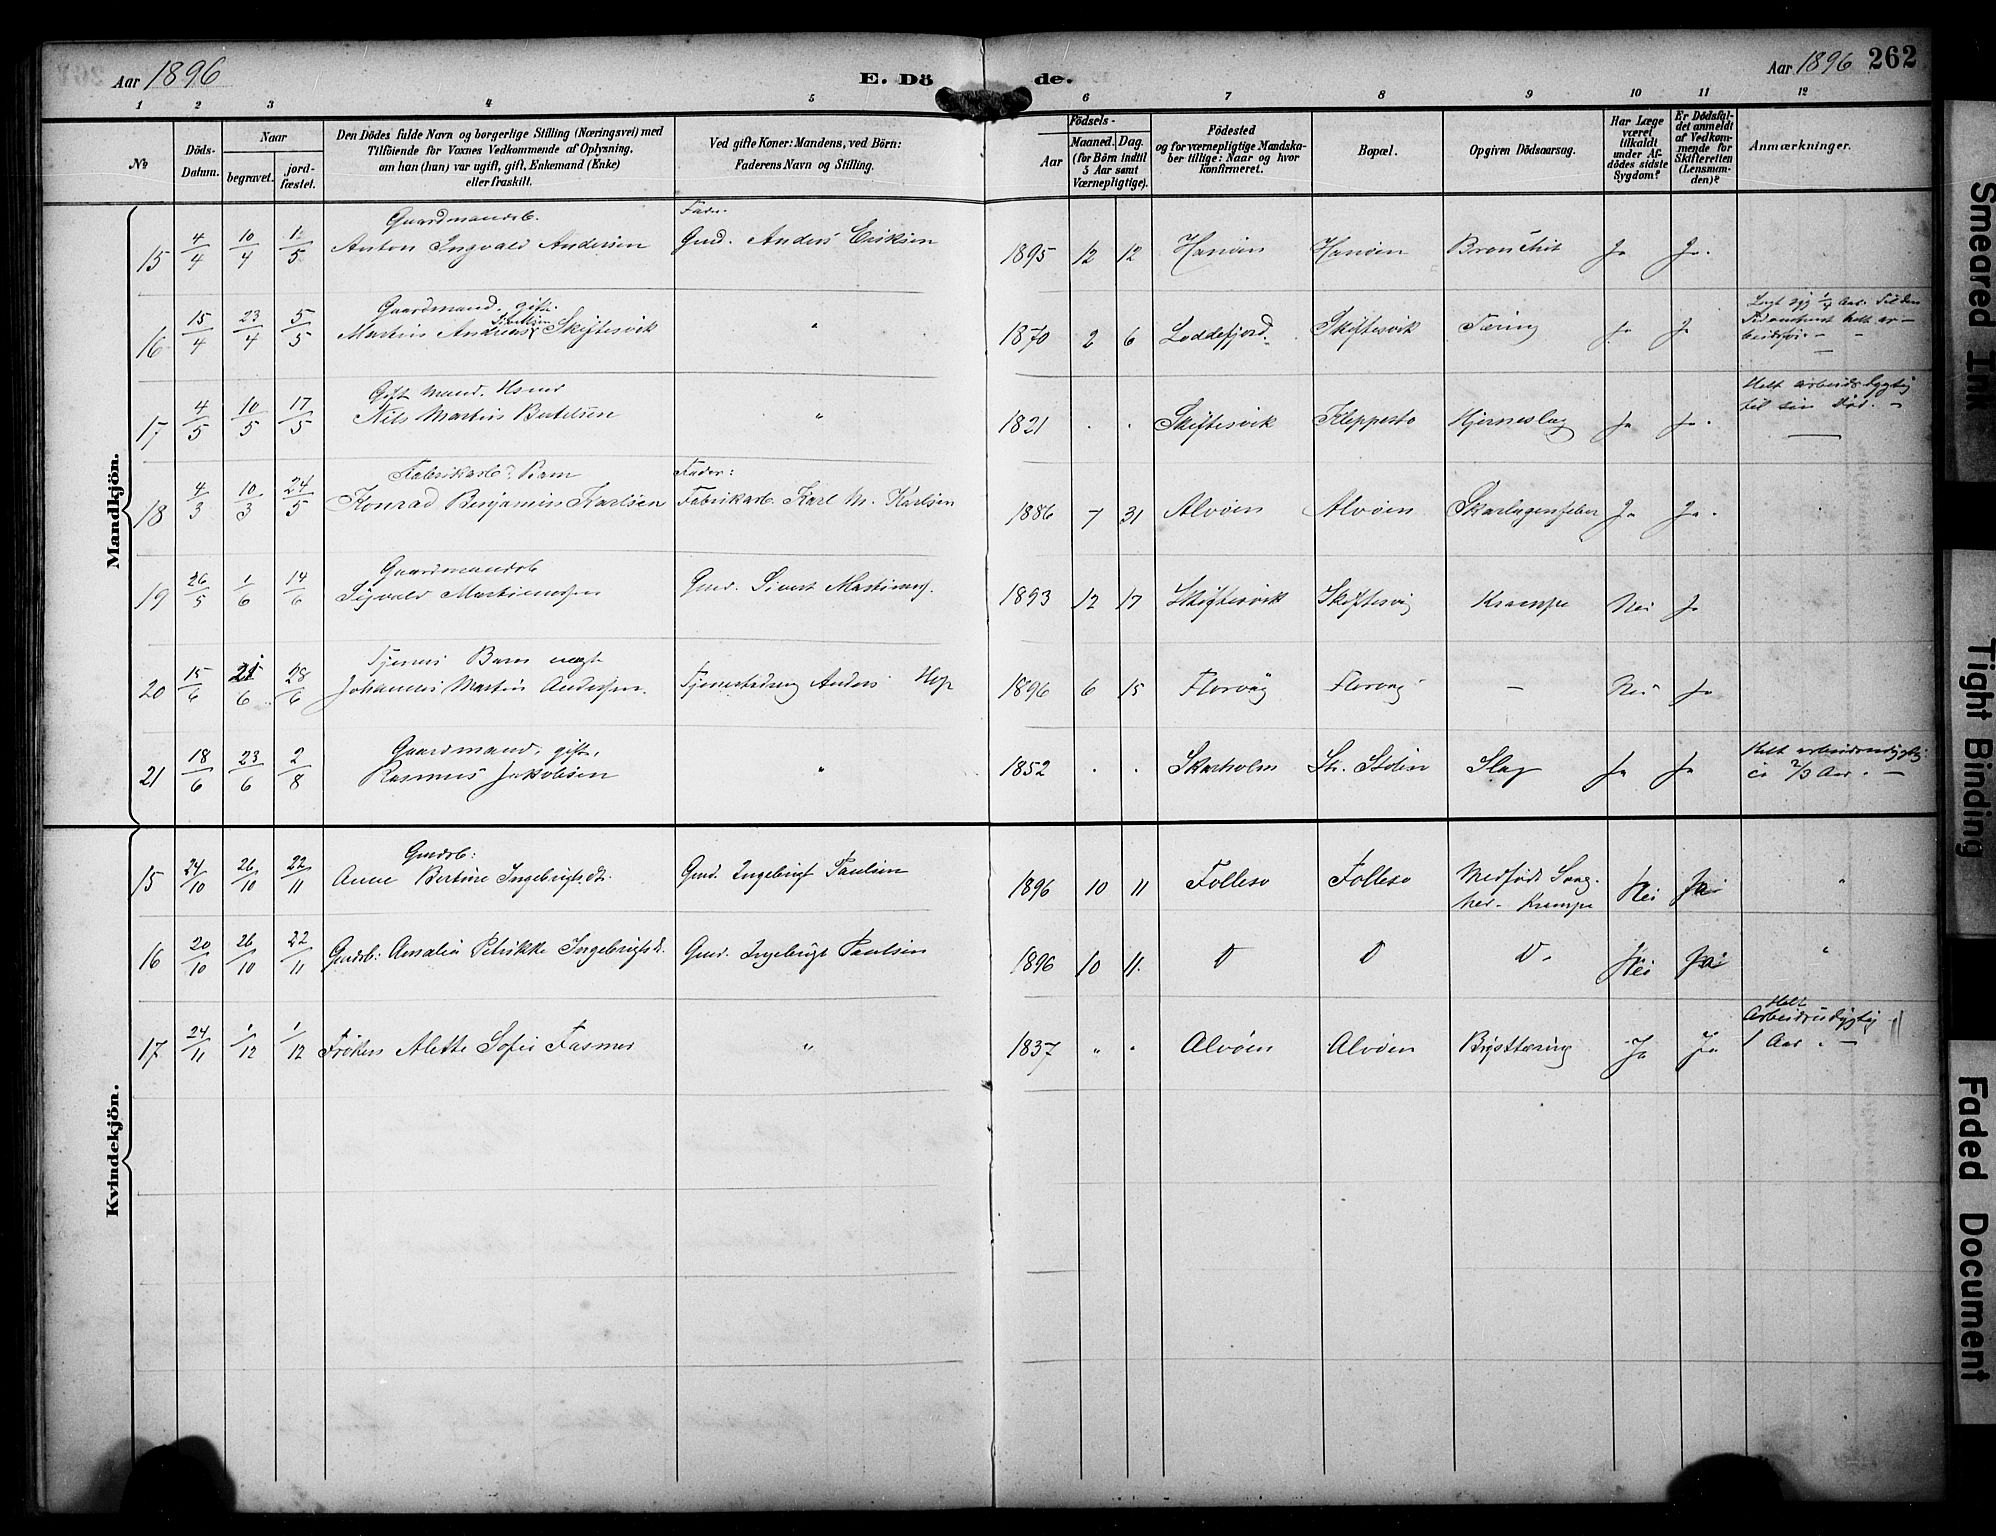 Aar 1896
E. Dö de.
Aar 1896 262
1 2 3 4 5 6 7 8 9 10 11 12
No
Döds-
Datum.
Naar
begravet.
jord-
fæstet.
Den Dödes fulde Navn og borgerlige Stilling (Næringsvei) med
Tilföiende for Voxnes Vedkommende af Oplysning,
om han (hun) var ugift, gift, Enkemand (Enke)
eller fraskilt.
Ved gifte Koner: Mandens, ved Börn:
Faderens Navn og Stilling.
Födsels-
Aar
Maaned. Dag.
(for Börn indtil
5 Aar samt
Værnepligtige).
Födested
og for værnepligtige Mandska-
ber tillige: Naar og hvor
konfirmeret.
Bopæl.
Opgiven Dödsaarsag.
Har Læge
været
tilkaldt
under Af-
dödes sidste
Sygdom?
Er Dödsfal-
det anmeldt
af Vedkom-
mende for
Skifteretten
(Lensman-
den)?
Anmærkninger.
Mandkjön.
Gaardmandsb. Fader.
15 4/4 10/4 12/5 Anton Ingvald Andersen Gmd. Anders Eriksen 1895 12 12 Hanöen Hanöen Bronchit Ja Ja.
Gaardmand, gift.
16 15/4 23/4 5/5 Martin Andreas Skiftesvik " 1870 2 6 Loddefjord. Skiftesvik Tæring Ja Ja
Gift Mand,
17 4/5 10/5 17/5 Nils Martin Bertelsen " 1821 . . Skiftesvik Kleppestö Hjerneslag Ja Ja. Helt arbeidsdygtig
til sin Död. -
Fabrikarb. Barn Fader:
18 4/3 10/3 24/5 Konrad Benjamin Karlsen Fabrikarb. Karl M. Karlsen 1886 7 31 Alvöen Alvöen Skarlagensfeber Ja Ja.
Gaardmandsb
19 26/5 1/6 14/6 Sigvald Martinussen Gmd. Sivert Martinus. 1893 12 17 Skiftesvik Skiftesvig Krampe Nei Ja
Tjeners Barn uægte
20 15/6 21/6 28/6 Johannes Martin Andersen. Tjenestedreng Anders Hop 1896 6 15 Florvåg Florvåg - Nei Ja
Gaardmand, gift,
21 18/6 23/6 2/8 Rasmus Jakobsen " 1852 . . Skarholm Slag Ja Ja Helt arbeidsudygtig
ca 2/3 Aar. -
Kvindekjön.
Gmdsb:
15 24/10 26/10 22/11 Anne Bertine Ingebrigtsdt. Gmd. Ingebrigt Paulsen 1896 10 11 Follesö Follesö Medfödt Svag-
hed - Krampe Nei Ja "
16 20/10 26/10 22/11 Gmdsb: Amalia Petrikke Ingebrigtsdt. Gmd. Ingebrigt Paulsen 1896 10 11. D D D. Nei Ja "
17 24/11 1/12 1/12 Fröken Alette Sofie Fasmer " 1837 " " Alvöen Alvöen Brysttæring Ja Ja Helt
Arbeidsudygtig
1 Aar. -
Smeared Ink
Tight Binding
Faded Document